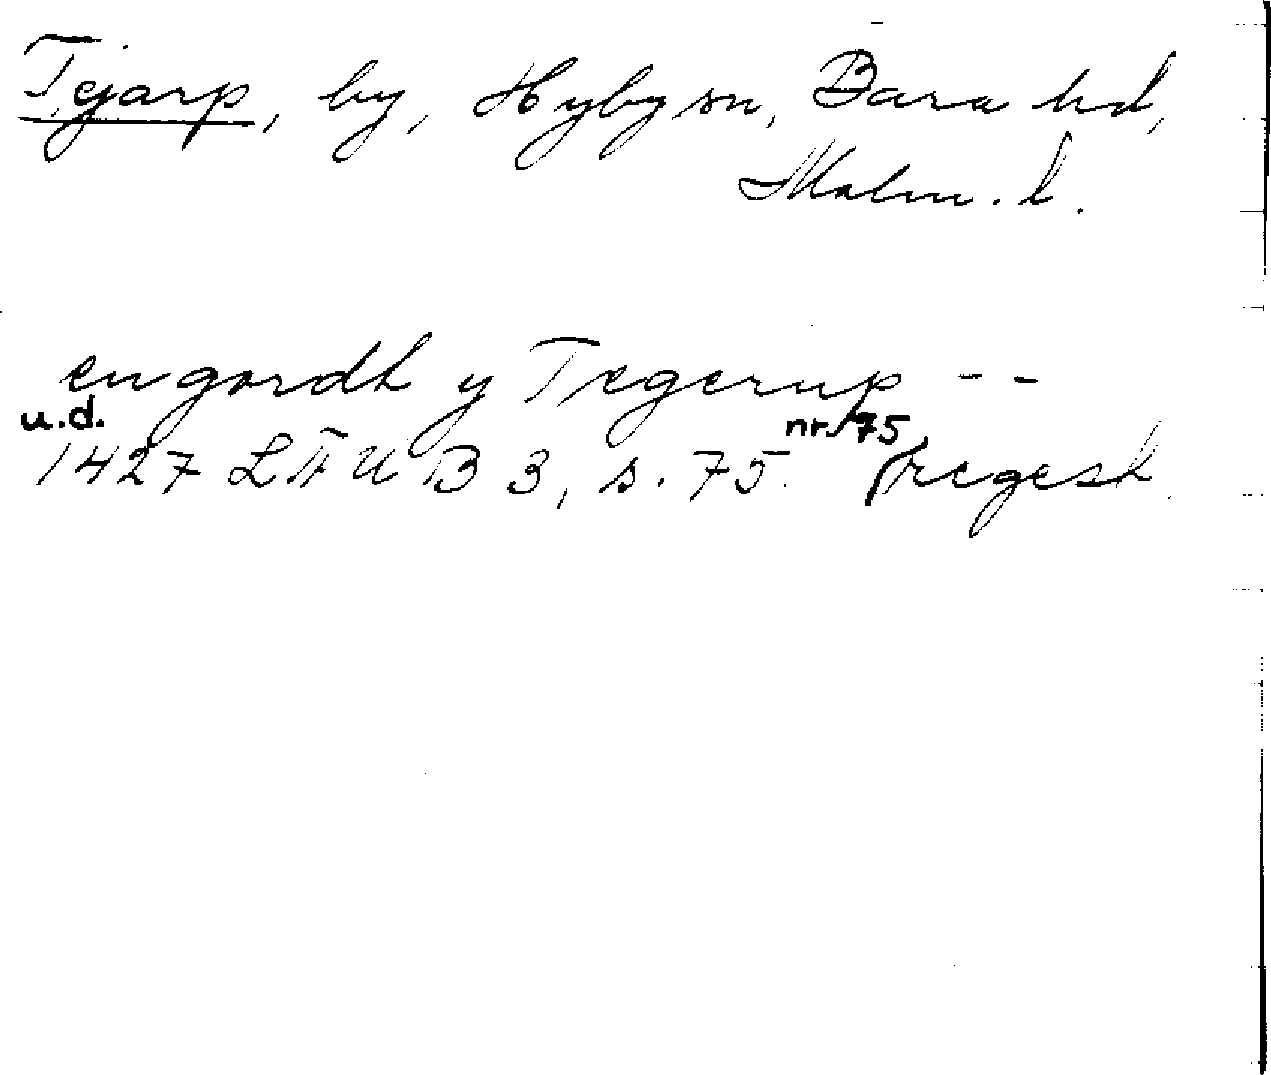 Tejarp, by, Hyby sn, Bara hd,
Malm. l.
en gordh y Tegerup - -
u.d. nr. 75,
1427 LÆUB 3, s. 75. regest.